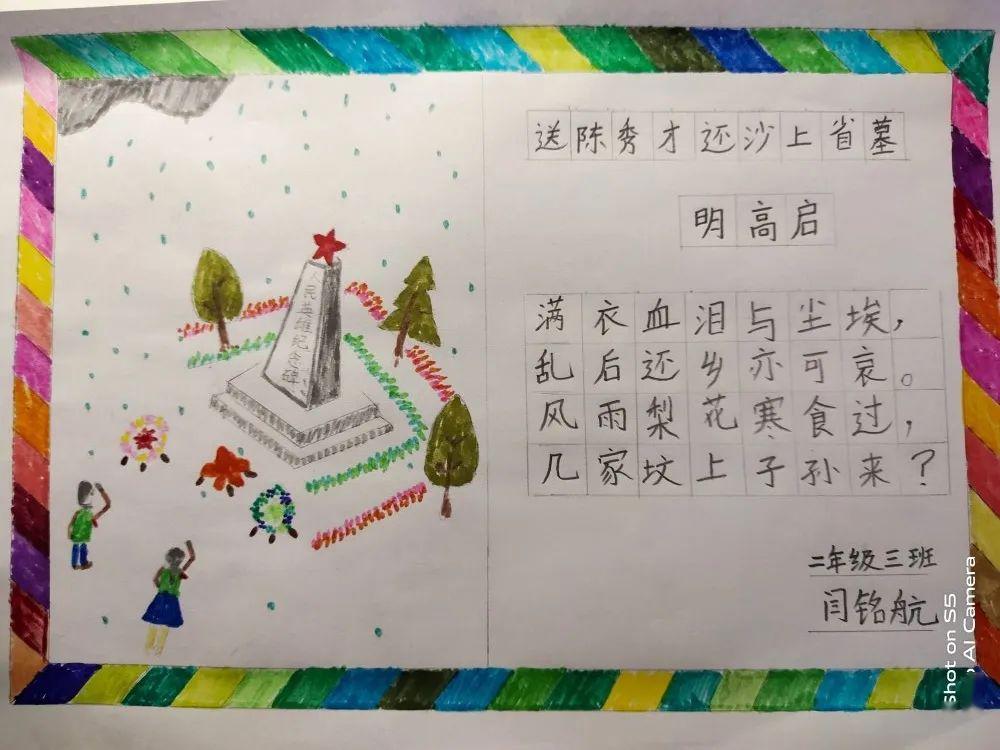 人民英雄纪念碑
送陈秀才还沙上省墓
明高启
满衣血泪与尘埃，
乱后还乡亦可哀。
风雨梨花寒食过，
几家坟上子孙来？
二年级三班
闫铭航
Shot on S5
AI Camera